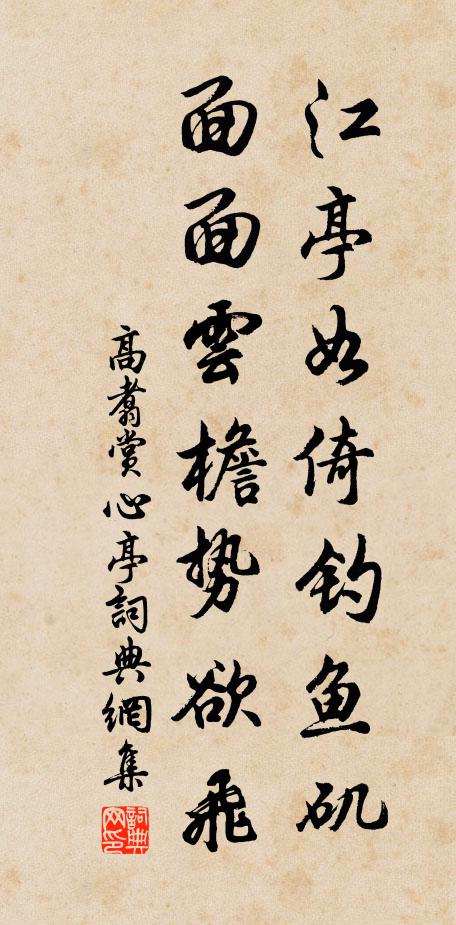 江亭如倚钓鱼矶
面面雲檐势欲飛
高翥賞心亭詞典網集
詞典网印